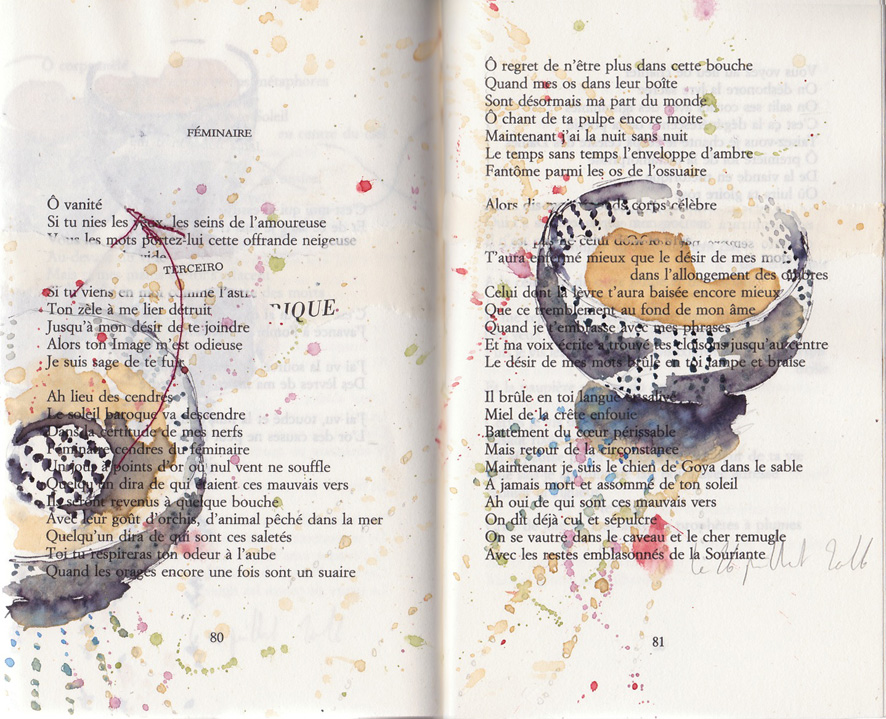 FÉMINAIRE
Ô vanité
Si tu nies les les seins de l'amoureuse
les mots portez-lui cette offrande neigeuse
TERCEIRO
RIQUE
Si tu viens en comme
Ton zèle à me lier détruit
Jusqu'à mon désir de te joindre
Alors ton Image m'est odieuse
Je suis sage de te fuir
Ah lieu des cendres
Le soleil baroque va descendre
Dans la certitude de mes nerfs
Féminaire cendres du féminaire
Un jour à points d'or où nul vent ne souffle
Quelqu'un dira de qui étaient ces mauvais vers
Ils seront revenus à quelque bouche
Avec leur goût d'orchis, d'animal pêché dans la mer
Quelqu'un dira de qui sont ces saletés
Toi tu respireras ton odeur à l'aube
Quand les orages encore une fois sont un suaire
80
Ô regret de n'être plus dans cette bouche
Quand mes os dans leur boîte
Sont désormais ma part du monde
Ô chant de ta pulpe encore moite
Maintenant j'ai la nuit sans nuit
Le temps sans temps l'enveloppe d'ambre
Fantôme parmi les os de l'ossuaire
Alors corps célèbre
celui dont
T'aura enfermé mieux que le désir de mes
dans l'allongement des ombres
Celui dont la lèvre t'aura baisée encore mieux
Que ce tremblement au fond de mon âme
Quand je t'embrasse avec mes phrases
Et ma voix écrite a trouvé tes cloisons jusqu'au centre
Le désir de mes mots brûle en toi lampe et braise
Il brûle en toi langue
Miel de la crête enfouie
Battement du cœur périssable
Mais retour de la circonstance
Maintenant je suis le chien de Goya dans le sable
À jamais mort et assommé de ton soleil
Ah oui de qui sont ces mauvais vers
On dit déjà cul et sépulcre
On se vautre dans le caveau et le cher remugle
Avec les restes emblasonnés de la Souriante
le 26 juillet 2016
81